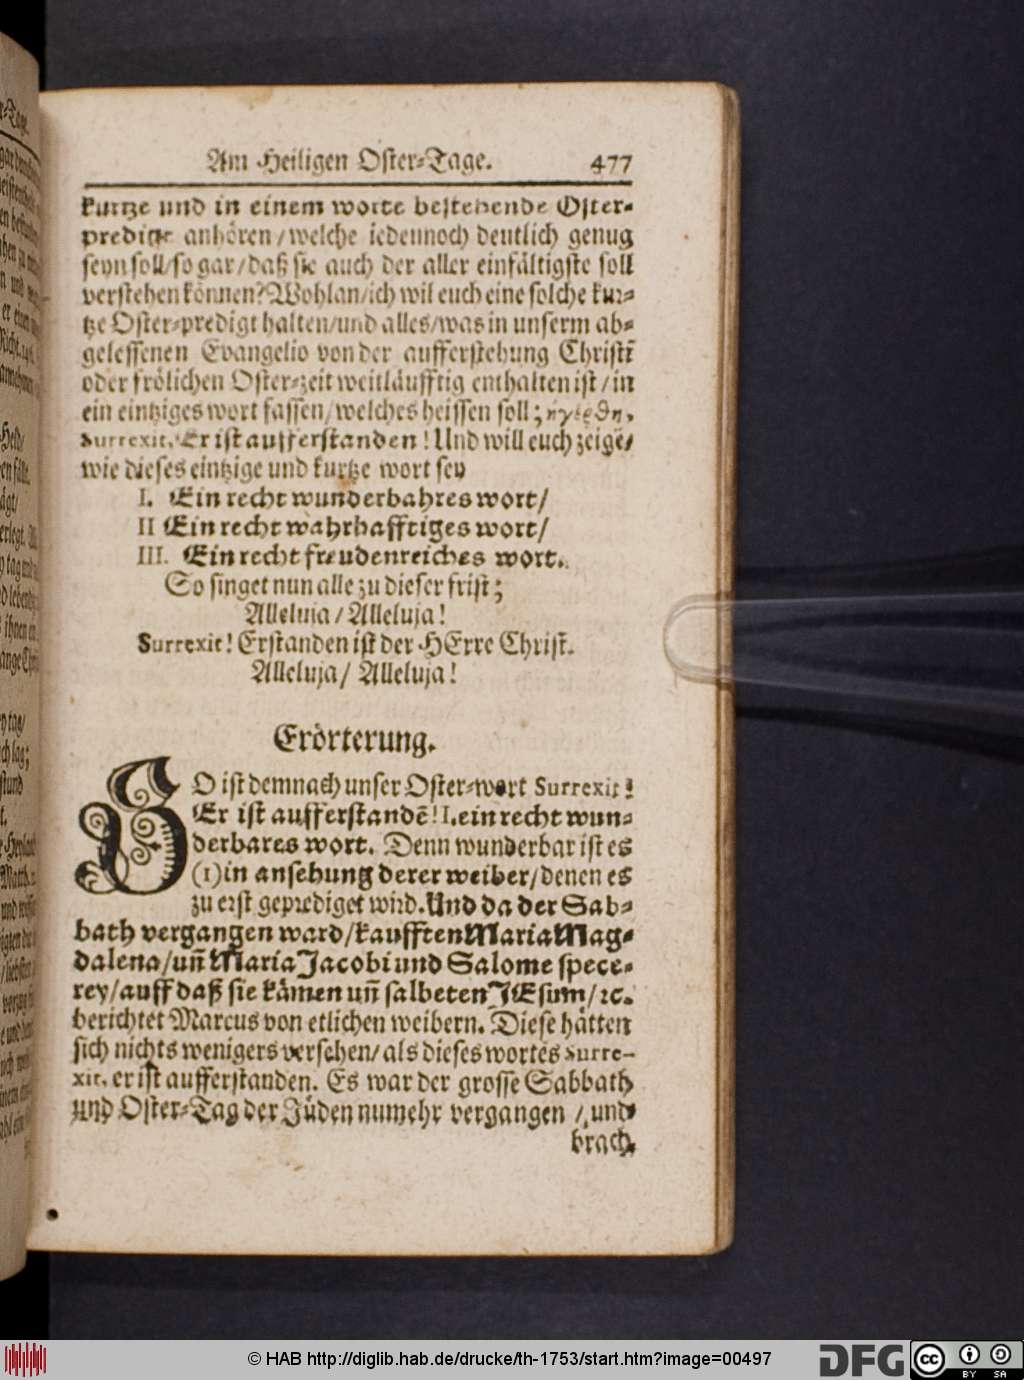 Am Heiligen Oster-Tage. 477
kurtze und in einem worte bestehende Oster-
predigt anhören/welche iedennoch deutlich genug
seyn soll/so gar/daß sie auch der aller einfältigste soll
verstehen können? Wohlan/ich wil euch eine solche kur-
tze Oster-predigt halten/und alles/was in unserm ab-
gelessenen Evangelio von der aufferstehung Christi
oder frölichen Oster-zeit weitläufftig enthalten ist/in
ein eintziges wort fassen/welches heissen soll; ηγερθη,
Surrexit, Er ist aufferstanden! Und will euch zeigē/
wie dieses eintzige und kurtze wort sey
I. Ein recht wunderbahres wort/
II Ein recht wahrhafftiges wort/
III. Ein recht freudenreiches wort.
So singet nun alle zu dieser frist;
Alleluja/Alleluja!
Surrexit! Erstanden ist der HErre Christ.
Alleluja/ Alleluja!
Erörterung.
SO ist demnach unser Oster-wort Surrexit!
Er ist aufferstandē! I. ein recht wun-
derbares wort. Denn wunderbar ist es
(1) in ansehung derer weiber/denen es
zu erst geprediget wird. Und da der Sab-
bath vergangen ward/kaufften Maria Mag-
dalena/uñ Maria Jacobi und Salome spece-
rey/auff daß sie kämen uñ salbeten JEsum/ꝛc.
berichtet Marcus von etlichen weibern. Diese hätten
sich nichts wenigers versehen/als dieses wortes Surre-
xit, er ist aufferstanden. Es war der grosse Sabbath
und Oster-Tag der Jüden numehr vergangen/und
brach
© HAB http://diglib.hab.de/drucke/th-1753/start.htm?image=00497
DFG
cc
BY
SA